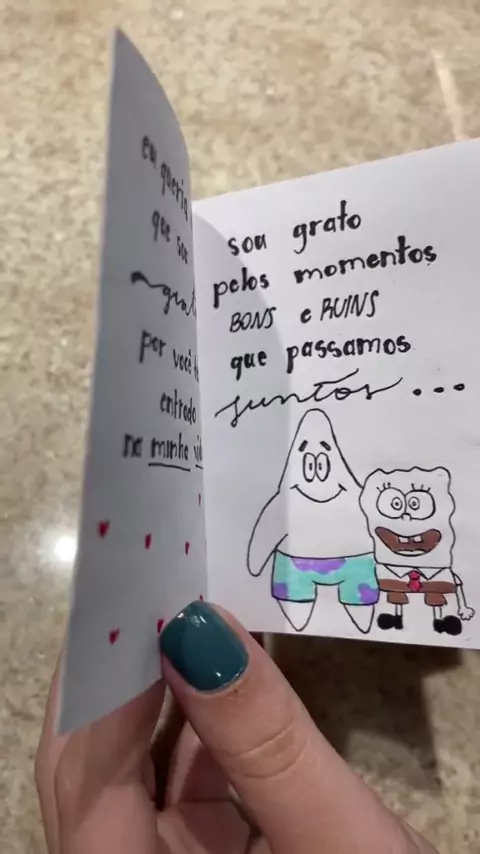 eu queria
que sou
por você
entrado
na minha
sou grato
pelos momentos
BONS e RUINS
que passamos
juntos ...